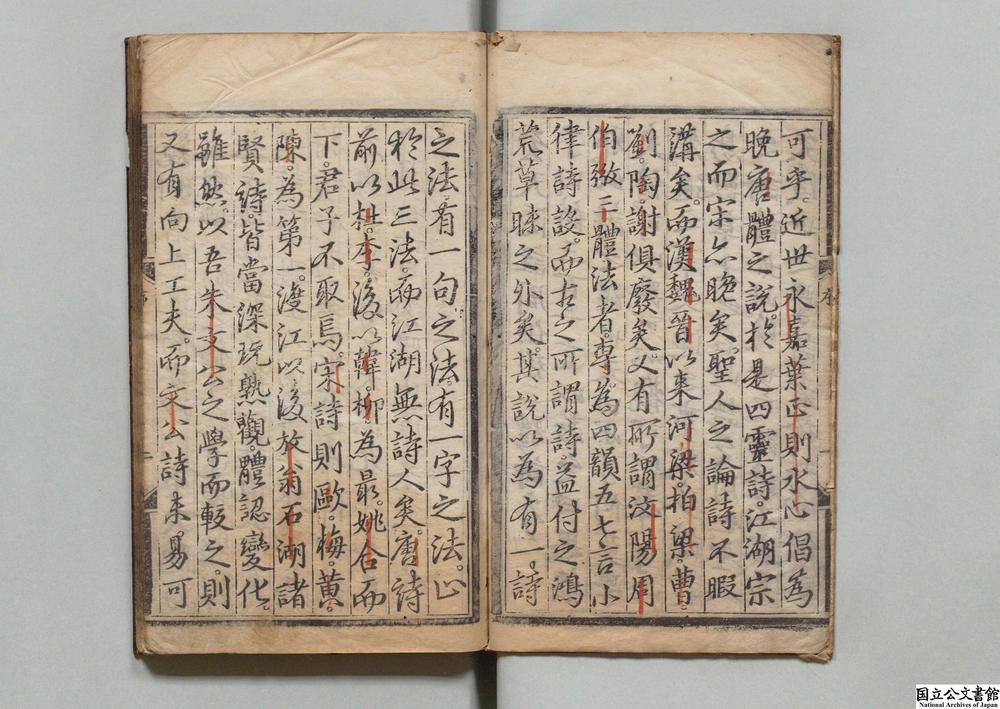 可乎近世永嘉葉正則水心倡為
晚唐體之說於是四靈詩江湖宗
之而宋亦晚矣聖人之論詩不暇
講矣而漢魏晉以来河梁柏梁曹
劉陶謝俱廢矣又有所謂汶陽周
伯弜三體法者專為四韻五七言小
律詩設而古之所謂詩益付之鴻
荒草昧之外矣其說以為有一詩
之法有一句之法有一字之法止
於此三法而江湖無詩人矣唐詩
前以杜李後以韓柳為最姚合而
下君子不取焉宋詩則歐梅黃
陳為第一渡江以後放翁石湖諸
賢詩皆當深玩熟觀體認變化
雖然以吾朱文公之學而較之則
又有向上工夫而文公詩未易可
序
国立公文書館
National Archives of Japan